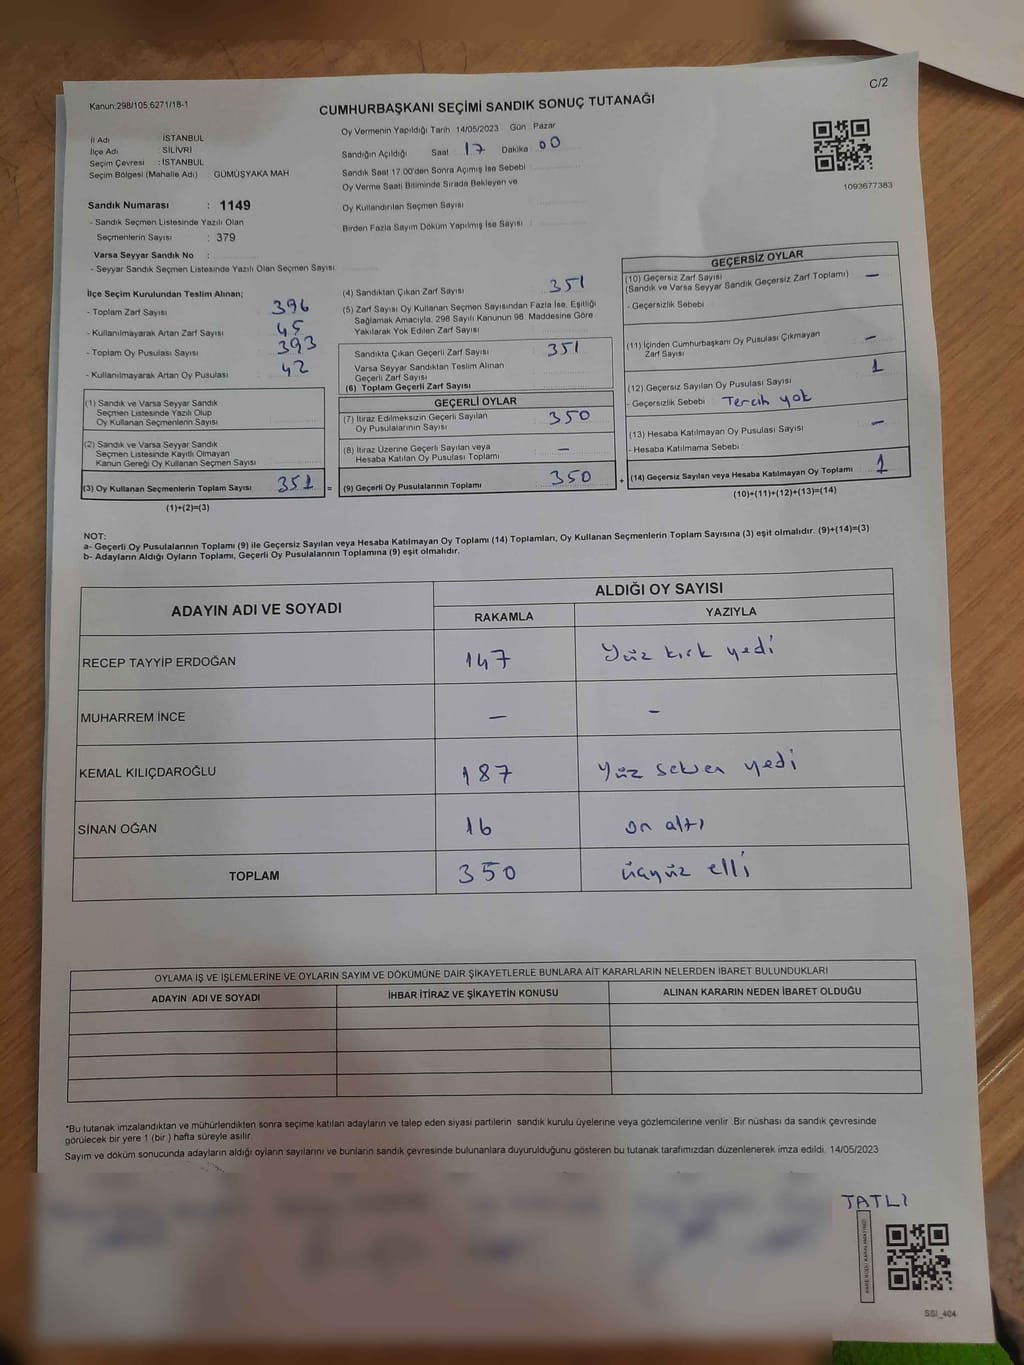 C/2
Kanun:298/105,6271/18-1
CUMHURBAŞKANI SEÇİMİ SANDIK SONUÇ TUTANAĞI
İl Adı : İSTANBUL
İlçe Adı : SİLİVRİ
Seçim Çevresi : İSTANBUL
Seçim Bölgesi (Mahalle Adı) : GÜMÜŞYAKA MAH.
Oy Vermenin Yapıldığı Tarih 14/05/2023 Gün : Pazar
Sandığın Açıldığı Saat : 17 Dakika : 00
Sandık Saat 17.00'den Sonra Açımış İse Sebebi :
Oy Verme Saati Bitiminde Sırada Bekleyen ve
Oy Kullandırılan Seçmen Sayısı :
Birden Fazla Sayım Döküm Yapılmış İse Sayısı :
1093677383
Sandık Numarası : 1149
- Sandık Seçmen Listesinde Yazılı Olan
Seçmenlerin Sayısı : 379
Varsa Seyyar Sandık No :
- Seyyar Sandık Seçmen Listesinde Yazılı Olan Seçmen Sayısı:
İlçe Seçim Kurulundan Teslim Alınan;
- Toplam Zarf Sayısı : 396
- Kullanılmayarak Artan Zarf Sayısı : 45
- Toplam Oy Pusulası Sayısı : 393
- Kullanılmayarak Artan Oy Pusulası : 42
(1) Sandık ve Varsa Seyyar Sandık
Seçmen Listesinde Yazılı Olup
Oy Kullanan Seçmenlerin Sayısı
(2) Sandık ve Varsa Seyyar Sandık
Seçmen Listesinde Kayıtlı Olmayan
Kanun Gereği Oy Kullanan Seçmen Sayısı
(3) Oy Kullanan Seçmenlerin Toplam Sayısı 351 =
(1)+(2)=(3)
(4) Sandıktan Çıkan Zarf Sayısı : 351
(5) Zarf Sayısı Oy Kullanan Seçmen Sayısından Fazla İse, Eşitliği
Sağlamak Amacıyla; 298 Sayılı Kanunun 98. Maddesine Göre
Yakılarak Yok Edilen Zarf Sayısı :
Sandıkta Çıkan Geçerli Zarf Sayısı : 351
Varsa Seyyar Sandıktan Teslim Alınan
Geçerli Zarf Sayısı :
(6) Toplam Geçerli Zarf Sayısı
GEÇERLİ OYLAR
(7) İtiraz Edilmeksizin Geçerli Sayılan
Oy Pusulalarının Sayısı : 350
(8) İtiraz Üzerine Geçerli Sayılan veya
Hesaba Katılan Oy Pusulası Toplamı : —
(9) Geçerli Oy Pusulalarının Toplamı 350 +
GEÇERSİZ OYLAR
(10) Geçersiz Zarf Sayısı
(Sandık ve Varsa Seyyar Sandık Geçersiz Zarf Toplamı) : —
- Geçersizlik Sebebi :
(11) İçinden Cumhurbaşkanı Oy Pusulası Çıkmayan
Zarf Sayısı : —
(12) Geçersiz Sayılan Oy Pusulası Sayısı : 1
- Geçersizlik Sebebi : Tercih yok
(13) Hesaba Katılmayan Oy Pusulası Sayısı : —
- Hesaba Katılmama Sebebi :
(14) Geçersiz Sayılan veya Hesaba Katılmayan Oy Toplamı 1
(10)+(11)+(12)+(13)=(14)
NOT:
a- Geçerli Oy Pusulalarının Toplamı (9) ile Geçersiz Sayılan veya Hesaba Katılmayan Oy Toplamı (14) Toplamları, Oy Kullanan Seçmenlerin Toplam Sayısına (3) eşit olmalıdır. (9)+(14)=(3)
b- Adayların Aldığı Oyların Toplamı, Geçerli Oy Pusulalarının Toplamına (9) eşit olmalıdır.
ADAYIN ADI VE SOYADI ALDIĞI OY SAYISI
RAKAMLA YAZIYLA
RECEP TAYYİP ERDOĞAN 147 Yüz kırk yedi
MUHARREM İNCE — —
KEMAL KILIÇDAROĞLU 187 Yüz seksen yedi
SİNAN OĞAN 16 on altı
TOPLAM 350 üçyüz elli
OYLAMA İŞ VE İŞLEMLERİNE VE OYLARIN SAYIM VE DÖKÜMÜNE DAİR ŞİKAYETLERLE BUNLARA AİT KARARLARIN NELERDEN İBARET BULUNDUKLARI
ADAYIN ADI VE SOYADI İHBAR İTİRAZ VE ŞİKAYETİN KONUSU ALINAN KARARIN NEDEN İBARET OLDUĞU
*Bu tutanak imzalandıktan ve mühürlendikten sonra seçime katılan adayların ve talep eden siyasi partilerin sandık kurulu üyelerine veya gözlemcilerine verilir. Bir nüshası da sandık çevresinde
görülecek bir yere 1 (bir ) hafta süreyle asılır.
Sayım ve döküm sonucunda adayların aldığı oyların sayılarını ve bunların sandık çevresinde bulunanlara duyurulduğunu gösteren bu tutanak tarafımızdan düzenlenerek imza edildi. 14/05/2023
TATLI
SSI_404